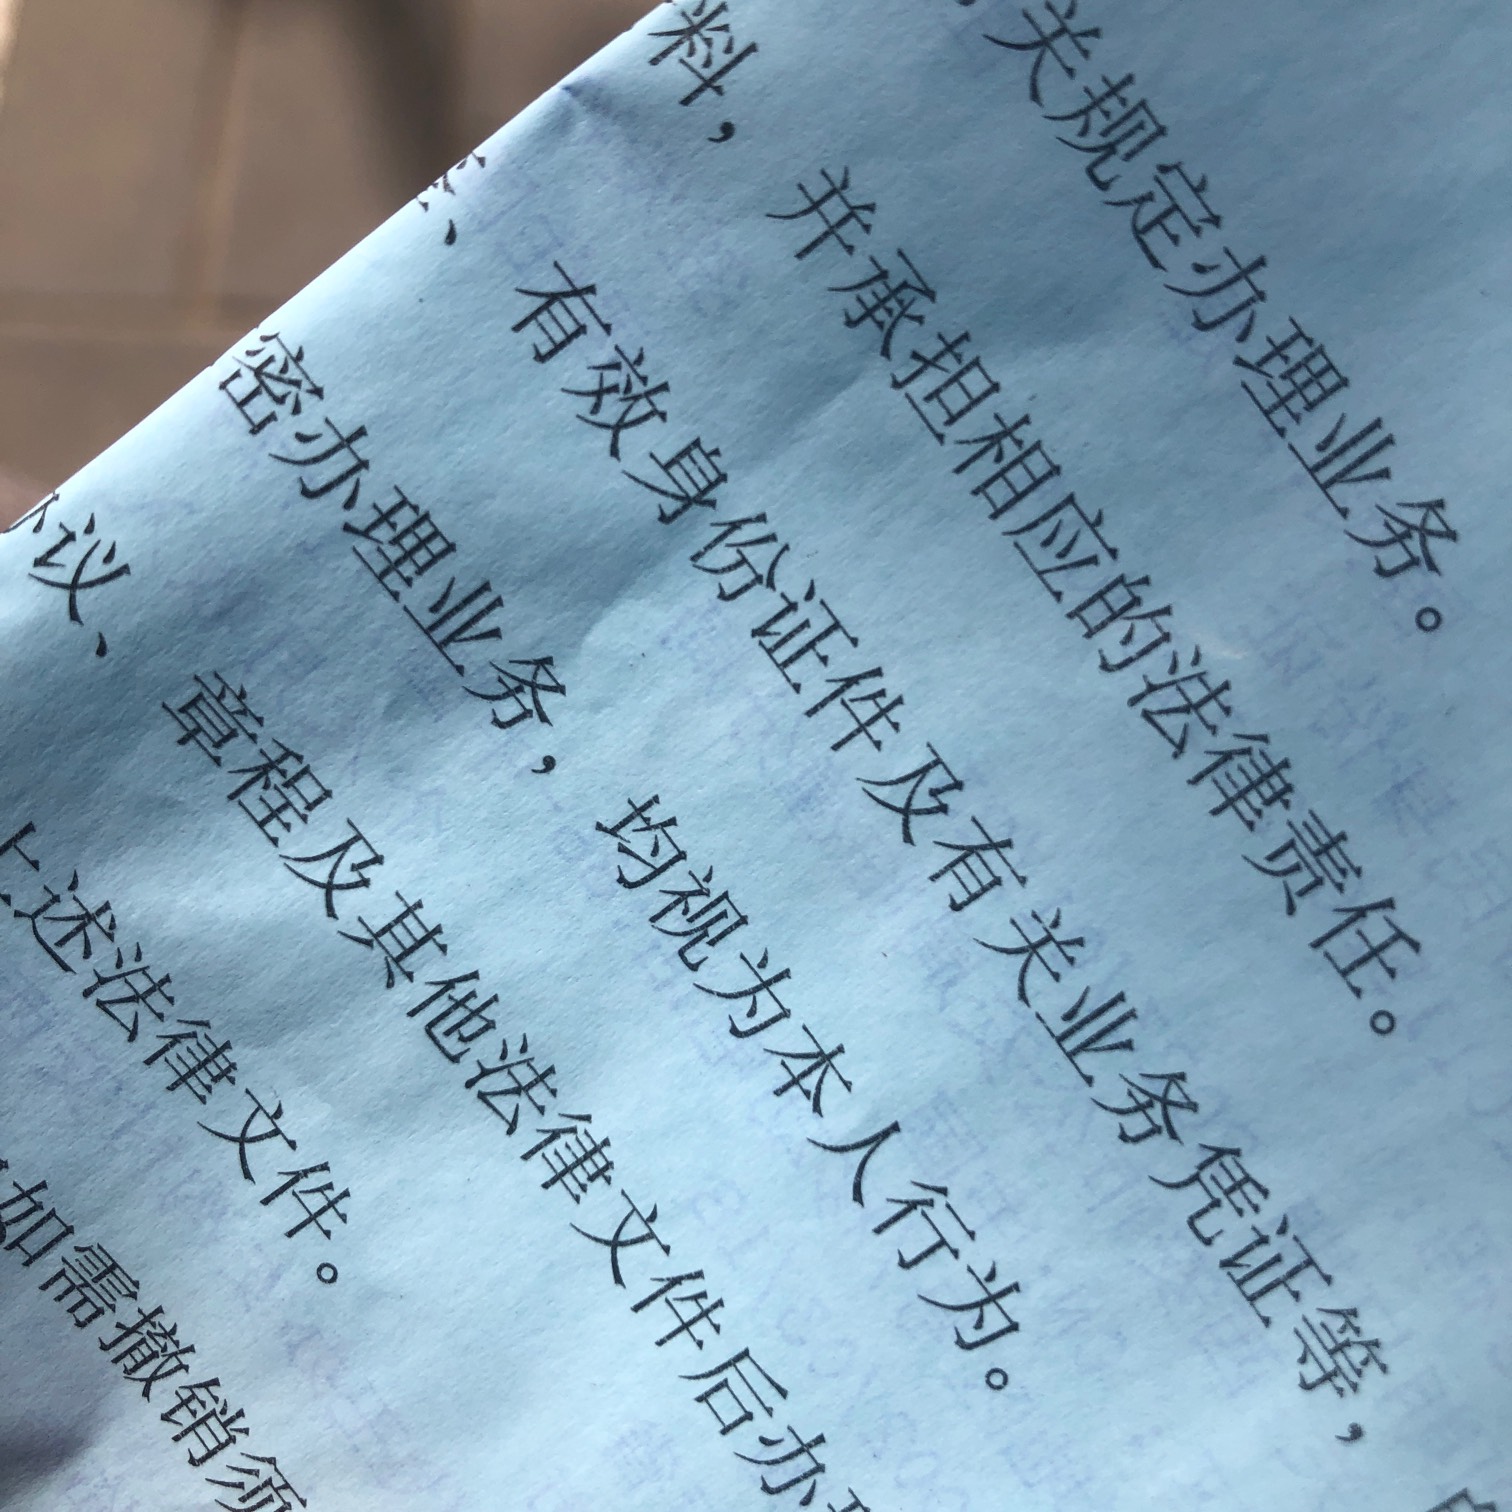 关规定办理业务。
料，并承担相应的法律责任。
、有效身份证件及有关业务凭证等，
密办理业务，均视为本人行为。
议、章程及其他法律文件后办理
上述法律文件。
如需撤销须